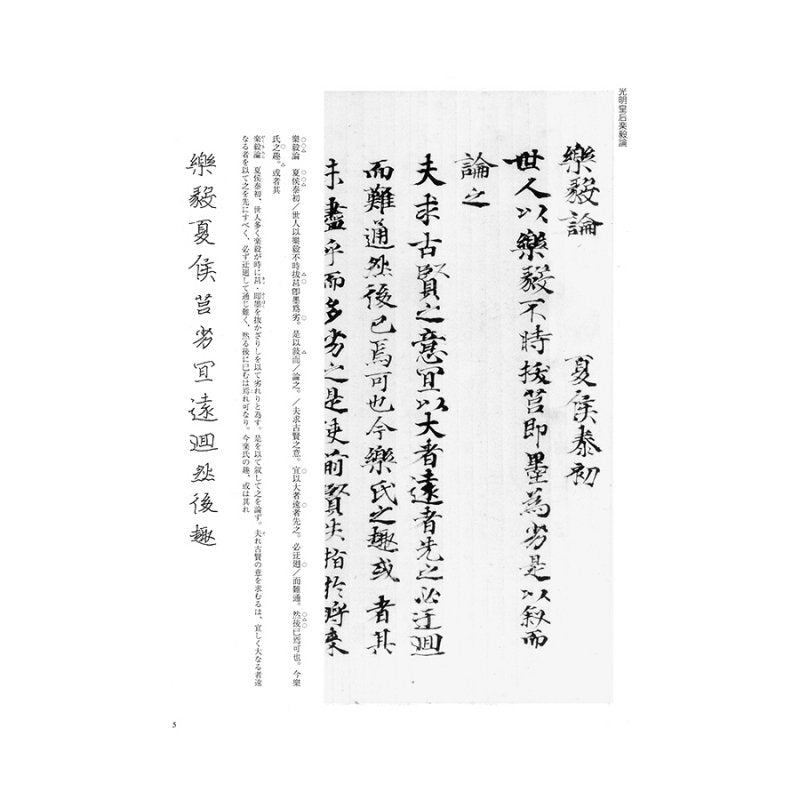 光明皇后楽毅論
樂毅論 夏侯泰初
世人以樂毅不時拔莒即墨為劣是以叙而
論之
夫求古賢之意宜以大者遠者先之必迂迴
而難通然後已焉可也今樂氏之趣或者其
未盡乎而多劣之是使前賢失指於將來
樂毅論 夏侯泰初/世人以樂毅不時拔莒卽墨爲劣。是以敍而/論之。/夫求古賢之意。宜以大者遠者先之。必迂廻/而難通。然後已焉可也。今樂
氏之趣。或者其
楽毅論 夏侯泰初、世人多く楽毅が時に莒・即墨を抜かざりしを以て劣れりと為す。是を以て叙して之を論ず。夫れ古賢の意を求むるは、宜しく大なる者遠
なる者を以て之を先にすべく、必ず迂廻して通じ難く、然る後に已むは焉れ可なり。今楽氏の趣、或は其れ
樂毅夏侯莒劣宜遠迴然後趣
5